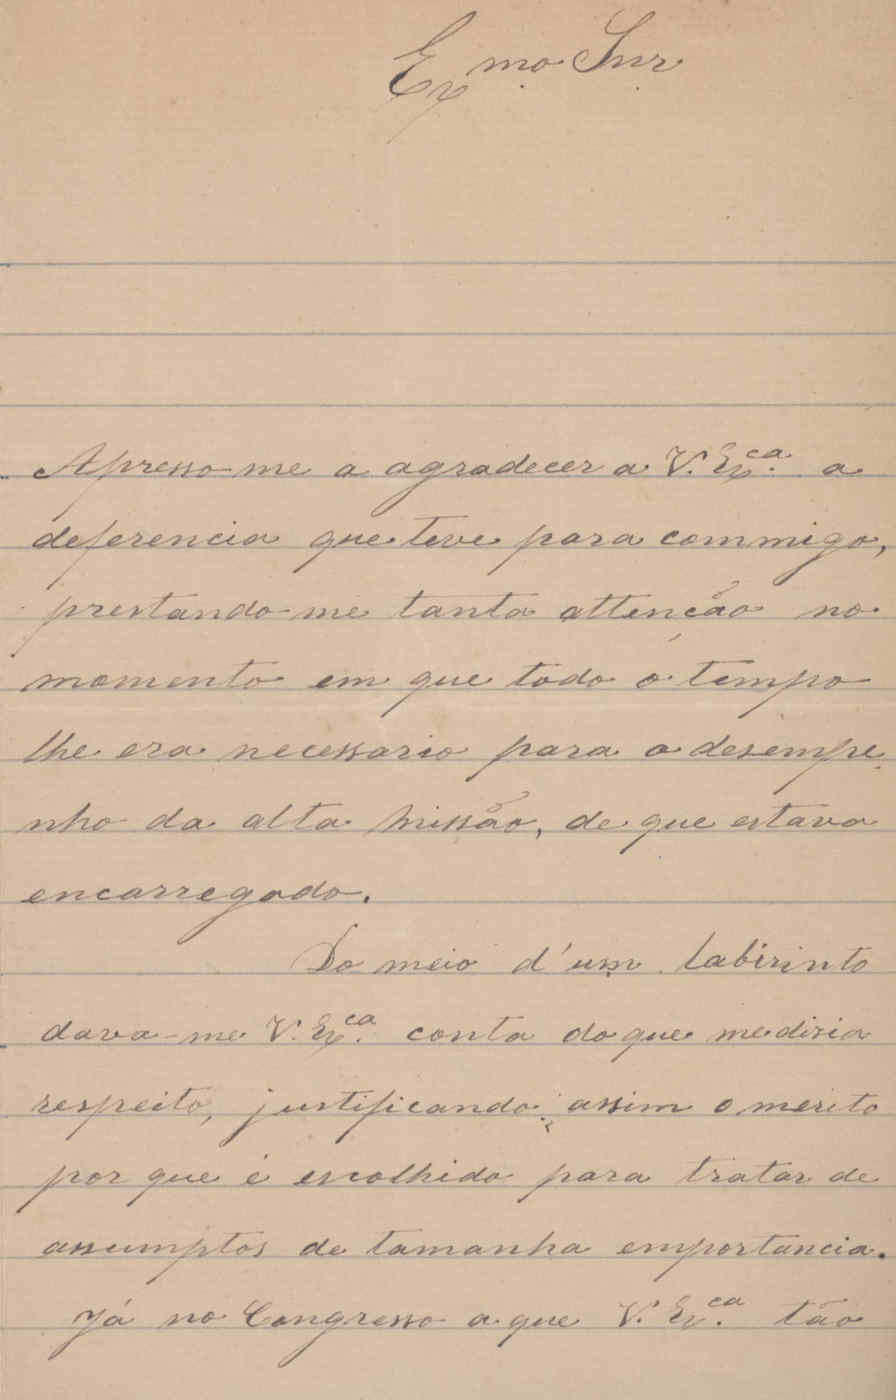 Exmo Snr
Apresso-me a agradecer a V. Exca. a
deferencia que teve para commigo,
prestando-me tanta attenção no
momento em que todo o tempo
lhe era necessario para o desempe-
nho da alta missão, de que estava
encarregado.
Do meio d'um labirinto
dava-me V. Exca. conta do que me dizia
respeito, justificando, assim o merito
por que é escolhido para tratar de
assumptos de tamanha emportancia.
Já no Congresso a que V. Exca. tão